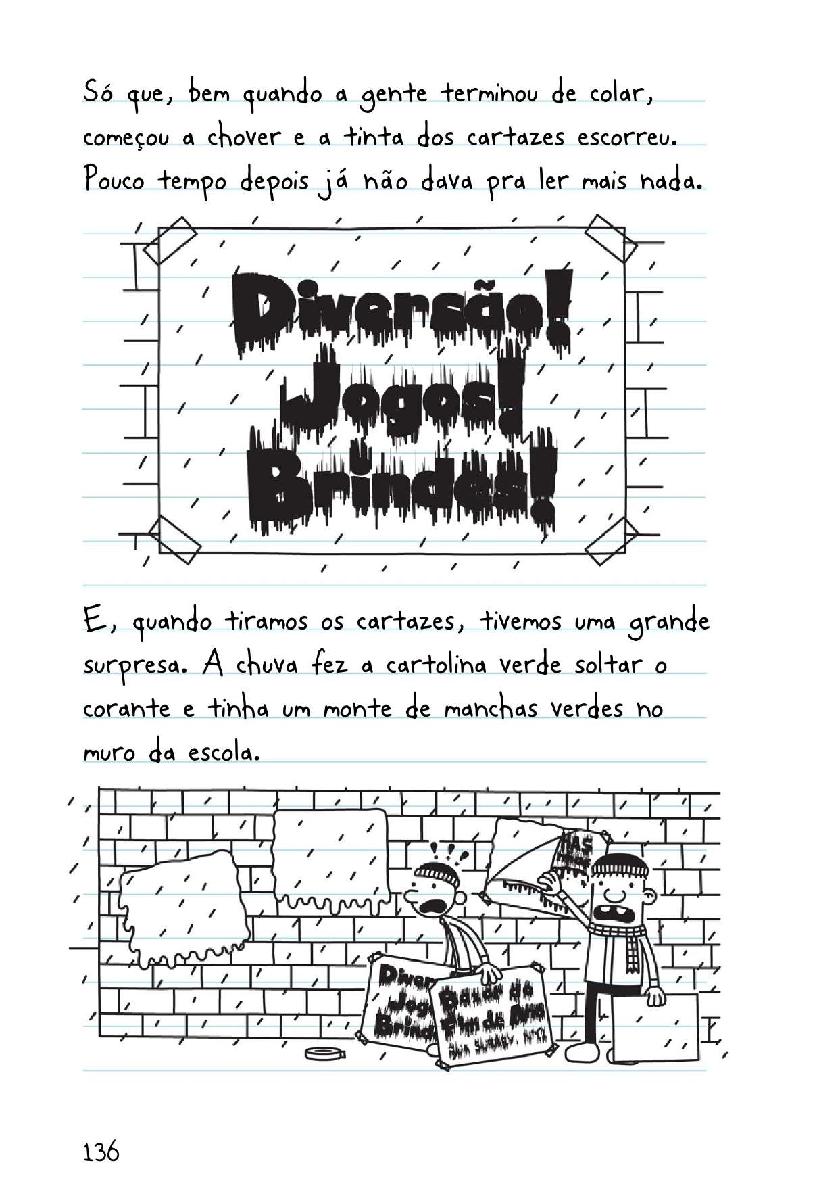 Só que, bem quando a gente terminou de colar,
começou a chover e a tinta dos cartazes escorreu.
Pouco tempo depois já não dava pra ler mais nada.
Diversão!
Jogos!
Brindes!
E, quando tiramos os cartazes, tivemos uma grande
surpresa. A chuva fez a cartolina verde soltar o
corante e tinha um monte de manchas verdes no
muro da escola.
Diver
Jog
Brind
Bazar de
Fim de Ano
136